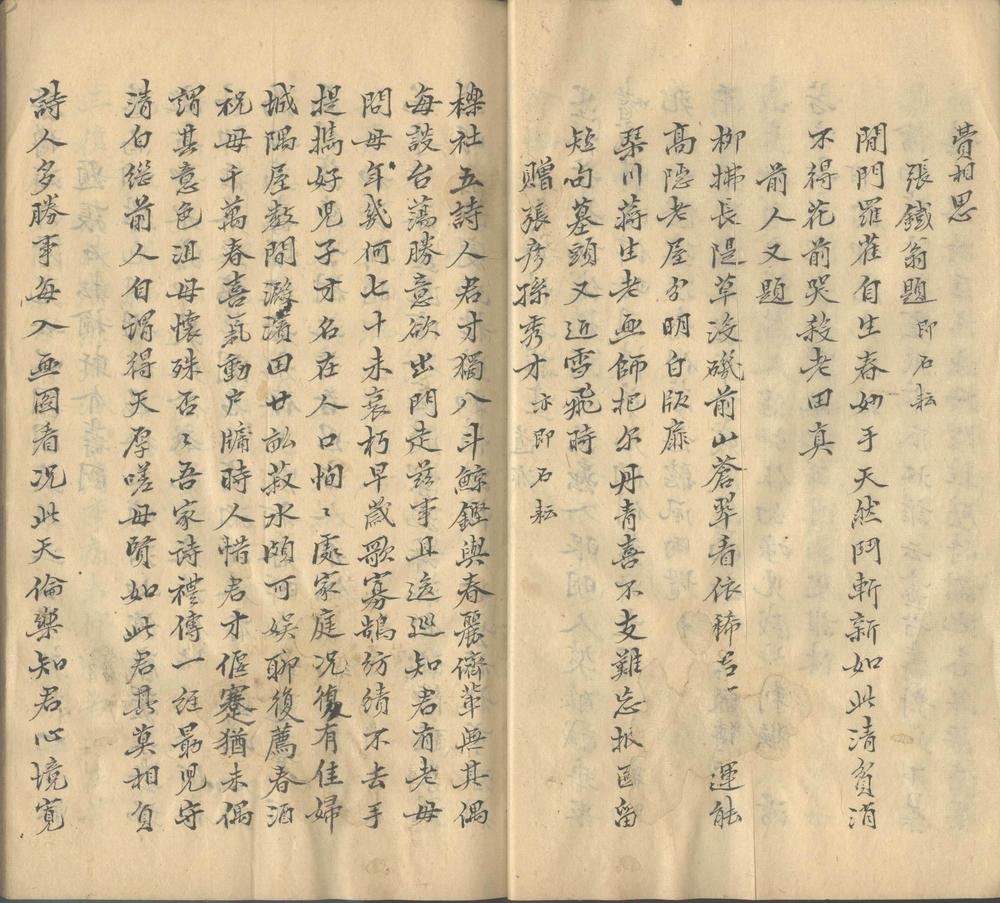 費相思
張鐵翁題 即石耘
閒門羅雀自生春妙手天然鬥斬新如此清貧消
不得花前哭殺老田真
前人又題
柳拂長隄草沒磯前山蒼翠看依稀 運能
高隱老屋分明白版扉
琴川蔣生老画師把尔丹青喜不支難忘扳區留
短句墓頭又近雪飛時
贈張彦孫秀才 亦即石耘
櫟社五詩人君才獨八斗鯨鏗與春麗儕輩無其偶
每設台蕩勝意欲出門走茲事且逡巡知君有老母
問母年幾何七十未衰朽早歲歌寡鵠紡績不去手
提携好兒子才名在人口恂〻處家庭况復有佳婦
城隅屋數間潞濱田廿畝菽水頗可娱聊復薦春酒
祝母千萬春喜氣動户牖時人惜君才偃蹇猶未偶
謂其意色沮母懷殊否〻吾家詩禮傳一經勗兒守
清白繼前人自謂得天厚嗟母賢如此君其莫相負
詩人多勝事每入画图看况此天倫樂知君心境寬